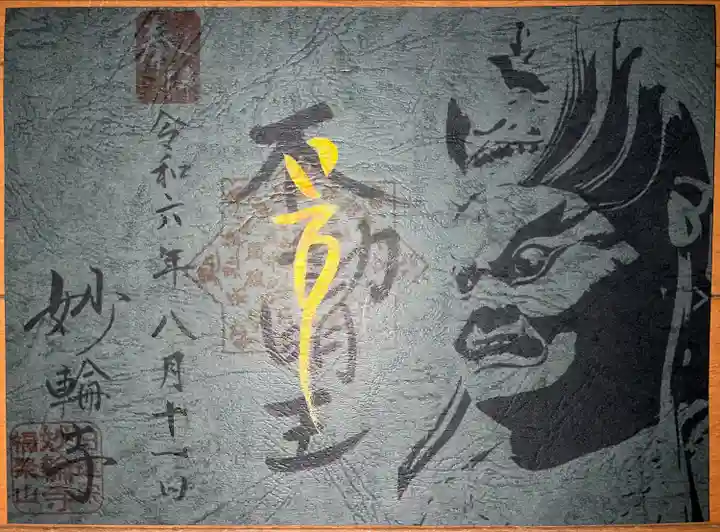 不動明王
奉拝
令和六年八月十一日
妙輪寺